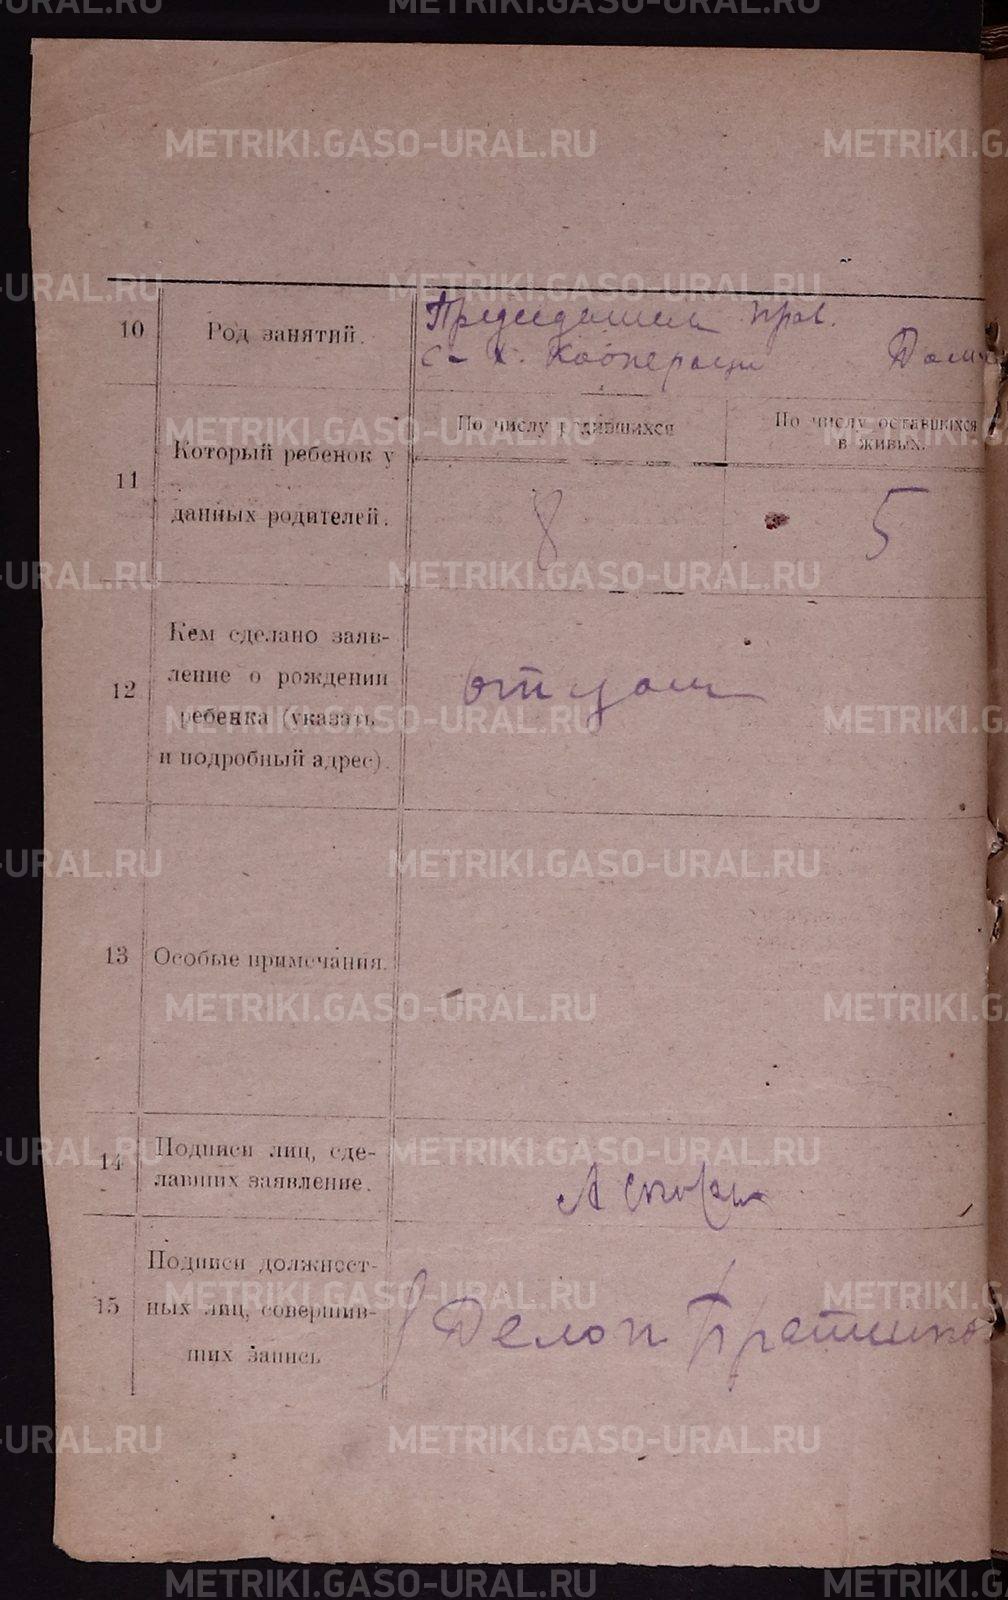 METRIKI.GASO-URAL.RU
10 Род занятий. Председателем прав.
с-х. Кооперации Дом
11 Который ребенок у данных родителей.
По числу родившихся
По числу оставшихся
в живых.
8 5
12 Кем сделано заяв-
ление о рождении
ребенка (указать
и подробный адрес).
отцом
13 Особые примечания.
14 Подписи лиц, сде-
лавших заявление.
А
15 Подписи должност-
ных лиц, совершив-
ших запись
Делоп